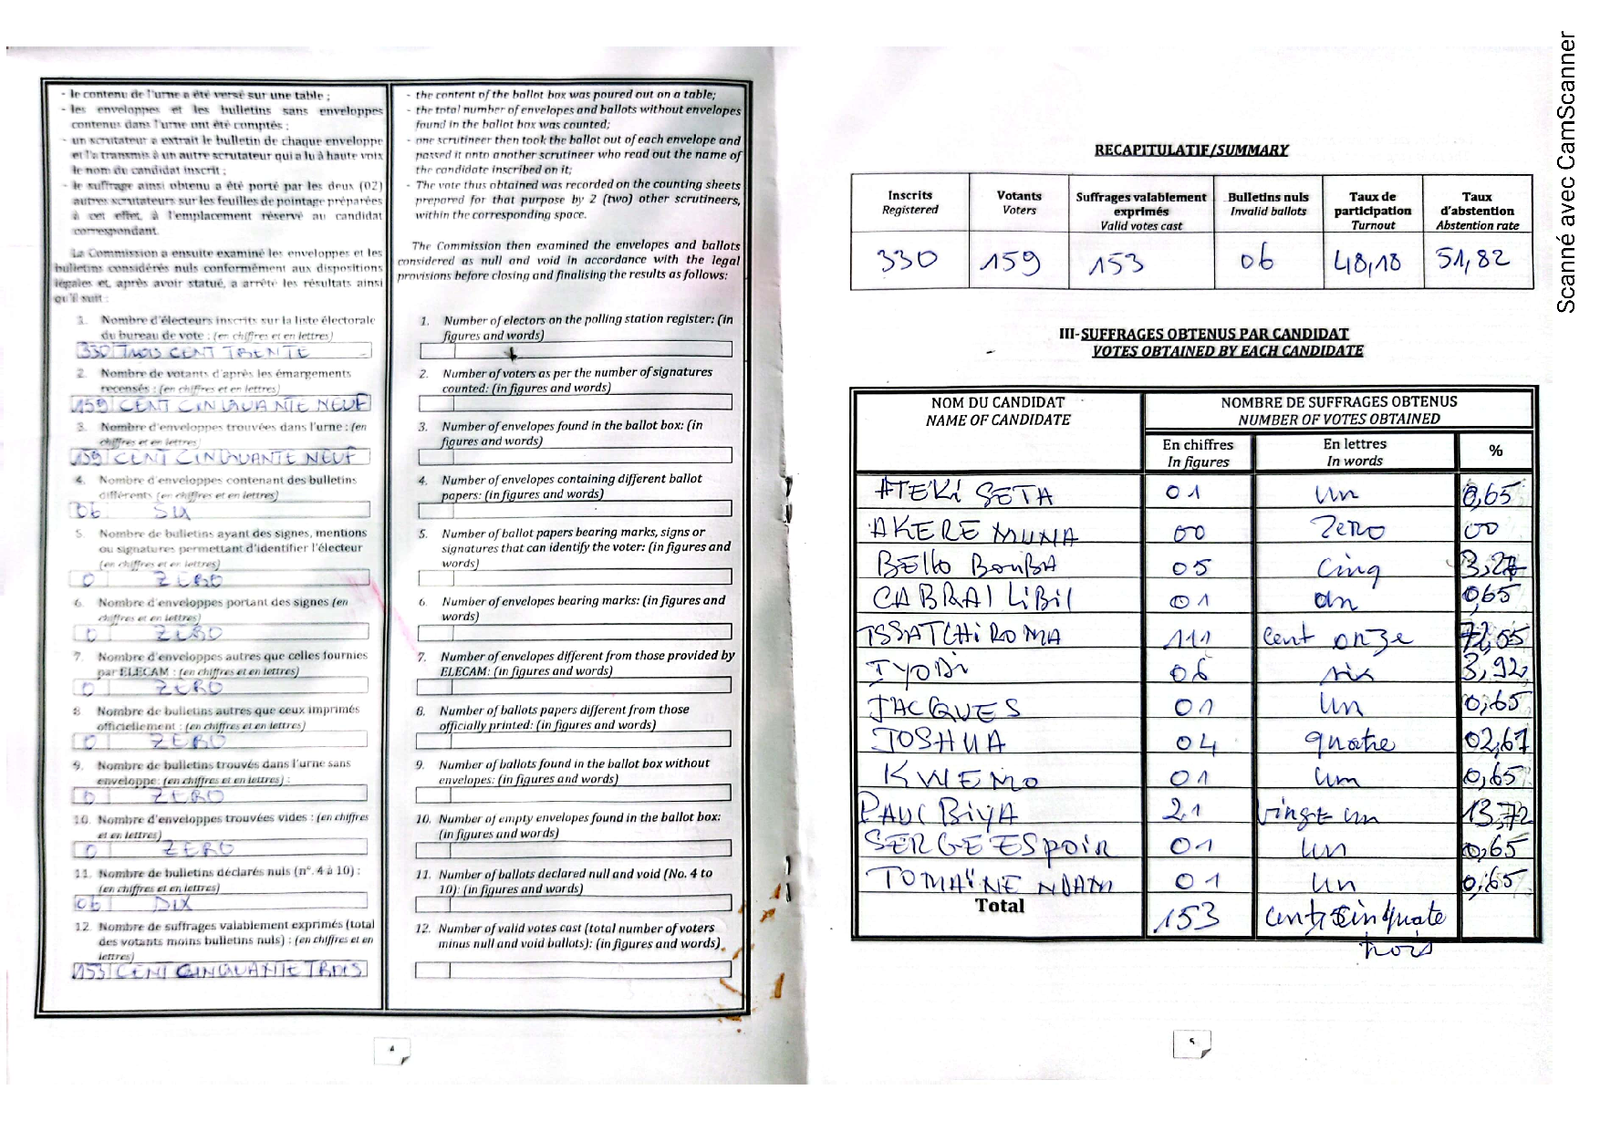 - le contenu de l'urne a été versé sur une table ;
- les enveloppes et les bulletins sans enveloppes
contenus dans l'urne ont été comptés ;
- un scrutateur a extrait le bulletin de chaque enveloppe
et l'a transmis à un autre scrutateur qui a lu à haute voix
le nom du candidat inscrit ;
- le suffrage ainsi obtenu a été porté par les deux (02)
autres scrutateurs sur les feuilles de pointage préparées
à cet effet, à l'emplacement réservé au candidat
correspondant.
La Commission a ensuite examiné les enveloppes et les
bulletins considérés nuls conformément aux dispositions
légales et, après avoir statué, a arrêté les résultats ainsi
qu'il suit :
1. Nombre d'électeurs inscrits sur la liste électorale
du bureau de vote : (en chiffres et en lettres)
330 TROIS CENT TRENTE
2. Nombre de votants d'après les émargements
recensés : (en chiffres et en lettres)
159 CENT CINQUANTE NEUF
3. Nombre d'enveloppes trouvées dans l'urne : (en
chiffres et en lettres)
159 CENT CINQUANTE NEUF
4. Nombre d'enveloppes contenant des bulletins
différents (en chiffres et en lettres)
06 SIX
5. Nombre de bulletins ayant des signes, mentions
ou signatures permettant d'identifier l'électeur
(en chiffres et en lettres)
0 ZERO
6. Nombre d'enveloppes portant des signes (en
chiffres et en lettres)
0 ZERO
7. Nombre d'enveloppes autres que celles fournies
par ELECAM : (en chiffres et en lettres)
0 ZERO
8. Nombre de bulletins autres que ceux imprimés
officiellement : (en chiffres et en lettres)
0 ZERO
9. Nombre de bulletins trouvés dans l'urne sans
enveloppe : (en chiffres et en lettres) :
0 ZERO
10. Nombre d'enveloppes trouvées vides : (en chiffres
et en lettres)
0 ZERO
11. Nombre de bulletins déclarés nuls (n°. 4 à 10) :
(en chiffres et en lettres)
06
12. Nombre de suffrages valablement exprimés (total
des votants moins bulletins nuls) : (en chiffres et en
lettres)
153 CENT CINQUANTE TROIS
- the content of the ballot box was poured out on a table;
- the total number of envelopes and ballots without envelopes
found in the ballot box was counted;
- one scrutineer then took the ballot out of each envelope and
passed it onto another scrutineer who read out the name of
the candidate inscribed on it;
- The vote thus obtained was recorded on the counting sheets
prepared for that purpose by 2 (two) other scrutineers,
within the corresponding space.
The Commission then examined the envelopes and ballots
considered as null and void in accordance with the legal
provisions before closing and finalising the results as follows:
1. Number of electors on the polling station register: (in
figures and words)
2. Number of voters as per the number of signatures
counted: (in figures and words)
3. Number of envelopes found in the ballot box: (in
figures and words)
4. Number of envelopes containing different ballot
papers: (in figures and words)
5. Number of ballot papers bearing marks, signs or
signatures that can identify the voter: (in figures and
words)
6. Number of envelopes bearing marks: (in figures and
words)
7. Number of envelopes different from those provided by
ELECAM: (in figures and words)
8. Number of ballots papers different from those
officially printed: (in figures and words)
9. Number of ballots found in the ballot box without
envelopes: (in figures and words)
10. Number of empty envelopes found in the ballot box:
(in figures and words)
11. Number of ballots declared null and void (No. 4 to
10): (in figures and words)
12. Number of valid votes cast (total number of voters
minus null and void ballots): (in figures and words)
4
RECAPITULATIF/SUMMARY
Inscrits Votants Suffrages valablement Bulletins nuls Taux de Taux
Registered Voters exprimés Invalid ballots participation d'abstention
Valid votes cast Turnout Abstention rate
330 159 153 06 48,18 51,82
III-SUFFRAGES OBTENUS PAR CANDIDAT
VOTES OBTAINED BY EACH CANDIDATE
NOM DU CANDIDAT NOMBRE DE SUFFRAGES OBTENUS
NAME OF CANDIDATE NUMBER OF VOTES OBTAINED
En chiffres En lettres %
In figures In words
ATEKI SETA 01 un 0,65
AKERE MUNA 00 ZERO 00
BEllO BOUBA 05 cinq 3,27
CABRAL LIBII 01 un 0,65
ISSA TCHIROMA 111 cent onze 72,55
IYODI 06 six 3,92
JACQUES 01 un 0,65
JOSHUA 04 quatre 02,61
KWEMO 01 um 0,65
PAUL BIYA 21 vingt un 13,72
SERGE ESPOIR 01 un 0,65
TOMAÏNE NDAM 01 un 0,65
Total 153 cent cinquate
trois
5
Scanné avec CamScanner